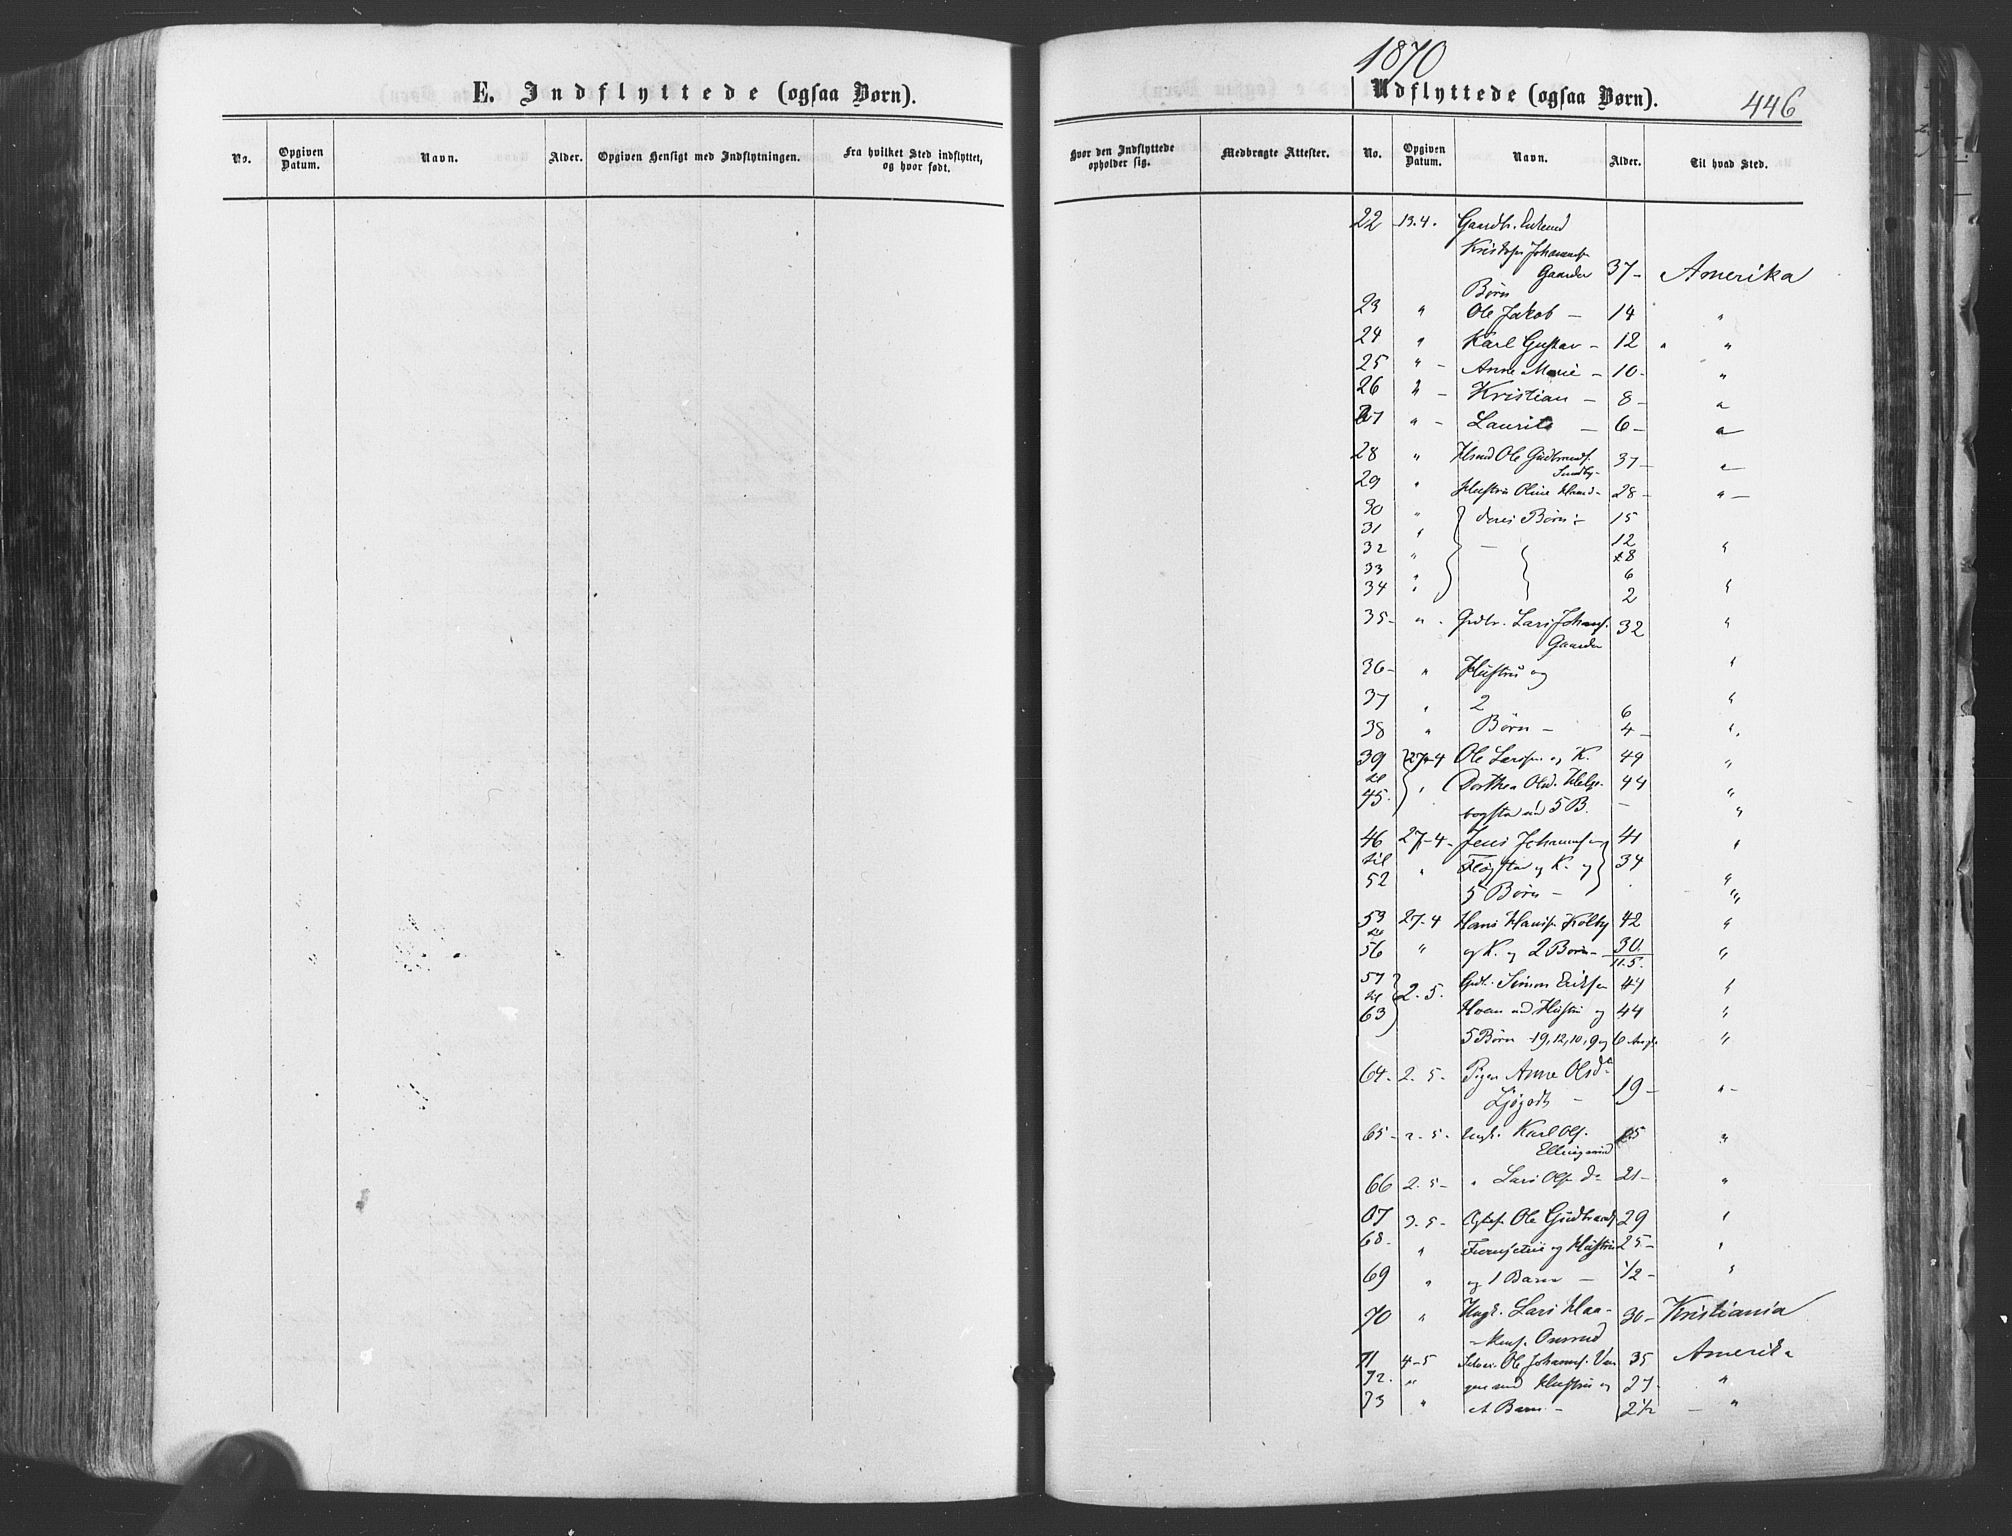 E. Indflyttede (ogsaa Børn).
No.
Opgiven Datum.
Navn.
Alder.
Opgiven Hensigt med Indflytningen.
Fra hvilket Sted indflyttet, og hvor født.
1870
Udflyttede (ogsaa Børn).
446
Hvor den Indflyttede opholder sig.
Medbragte Attester.
No.
Opgiven Datum.
Navn.
Alder.
Til hvad Sted.
22 13.4. Gaardbr. Enkemd
Kristofer Johanness.
Gaarder 37- Amerika
Børn
23 " Ole Jakob - 14 "
24 " Karl Gustav - 12 " "
25 " - Anne Marie - 10- "
26 " - Kristian - 8- "
27 " - Laurits - 6- "
28 " Hsmd Ole Gudbrands. 37- "
Sundby-
29 " Hustru Oline Hansd- 28- "-
30 " deres Børn:- 15
31 " 12
32 " - 8 "
33 " 6
34 " 2 "
35- " - Grdbr. Lars Johans. 32 "
Gaarder
36- " Hustru og "
37 " 2 6 "
38 " Børn - 4- "
39 27-4 Ole Larsen og K. 49 "
til " Dorthea Olsd. Helge- 44 "
45. bogstad m 5 B. - "
46 27-4- Jens Johannes 41 "
til " og K. og 34 "
52 5 Børn - "
53 27-4 Hans Hans. Kolby 42 "
til
56 " og K. og 2 Børn- 30. "
11.5.
57 2.5. Simon Eriksen 44 "
til
63 Hoen md Hustru og 44 "
5 Børn - 19, 12, 10, 9 og 6 "
64- 2-5- Pigen Anne Olsdr 19- "-
65- 2-5- Ungk. Karl Ols. "
66 2.5- " Lars Ols. do 21- "
67 3-5- Ole Gudbrands 29 "
68- " og Hustru 25- "
69 " og 1 Barn - 1/2- "
70 " Ungk. Lars Haa- 30- Kristiania
kens. Onsrud
71 4-5 Ole Johanns. Van 35 Amerika
72. " gen md Hustru og 27. "
73 " et Barn - 2½ - "